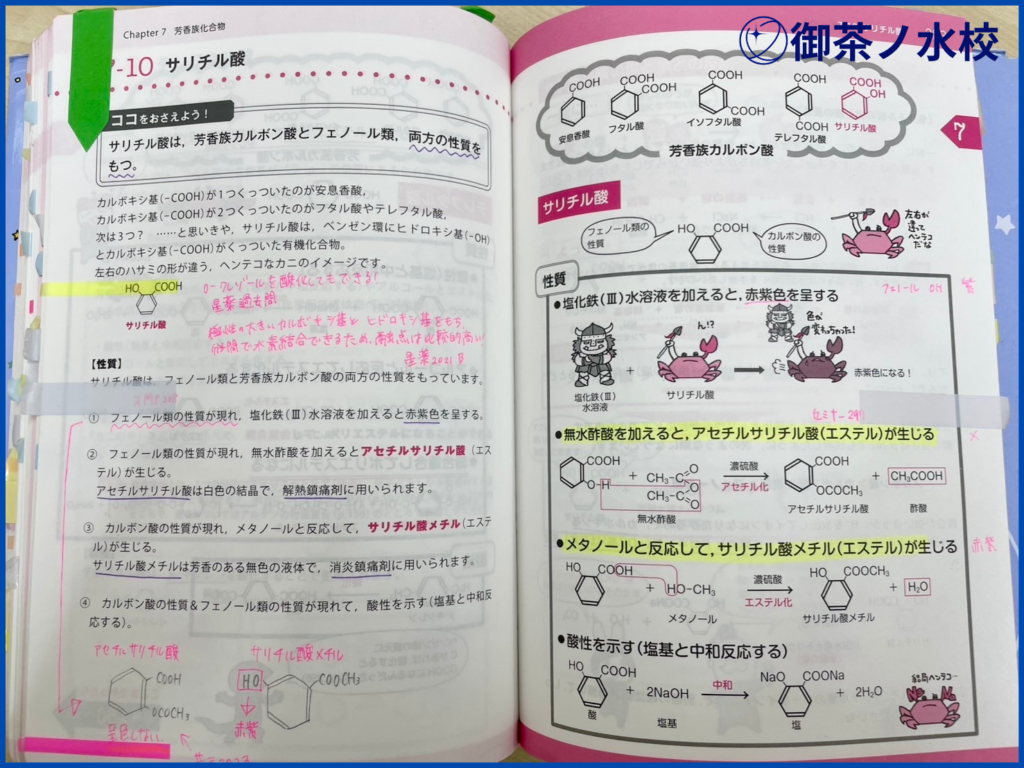 Chapter 7 芳香族化合物
7-10 サリチル酸
ココをおさえよう！
サリチル酸は，芳香族カルボン酸とフェノール類，両方の性質を
もつ。
カルボキシ基(-COOH)が1つくっついたのが安息香酸，
カルボキシ基(-COOH)が2つくっついたのがフタル酸やテレフタル酸，
次は3つ？ ……と思いきや，サリチル酸は，ベンゼン環にヒドロキシ基(-OH)
とカルボキシ基(-COOH)がくっついた有機化合物。
左右のハサミの形が違う，ヘンテコなカニのイメージです。
HO COOH
サリチル酸
o-クレゾールを酸化してもできる!
星薬過去問
極性の大きいカルボキシ基と ヒドロキシ基をもち
分子間で水素結合できるため，融点は比較的高い!
星薬2021
【性質】
サリチル酸は，フェノール類と芳香族カルボン酸の両方の性質をもっています。
① フェノール類の性質が現れ，塩化鉄(Ⅲ)水溶液を加えると赤紫色を呈する。
② フェノール類の性質が現れ，無水酢酸を加えるとアセチルサリチル酸(エス
テル)が生じる。
アセチルサリチル酸は白色の結晶で，解熱鎮痛剤に用いられます。
③ カルボン酸の性質が現れ，メタノールと反応して，サリチル酸メチル(エステ
ル)が生じる。
サリチル酸メチルは芳香のある無色の液体で，消炎鎮痛剤に用いられます。
④ カルボン酸の性質＆フェノール類の性質が現れて，酸性を示す(塩基と中和反
応する)。
アセチルサリチル酸
COOH
OCOCH₃
呈色しない
サリチル酸メチル
HO COOCH₃
赤紫
御茶ノ水校
COOH
安息香酸
COOH
COOH
フタル酸
COOH
COOH
イソフタル酸
COOH
COOH
テレフタル酸
COOH
OH
サリチル酸
芳香族カルボン酸
7
サリチル酸
フェノール類の
性質
HO COOH
カルボン酸の
性質
左右が
違って
ヘンテコ
だな
性質
●塩化鉄(Ⅲ)水溶液を加えると，赤紫色を呈する
フェノール OH
塩化鉄(Ⅲ)
水溶液
+
ん!?
サリチル酸
色が
変わっちゃった!
赤紫色になる！
セミナー 291
●無水酢酸を加えると，アセチルサリチル酸(エステル)が生じる
COOH
O-H
+
CH₃-C O
CH₃-C O
O
無水酢酸
濃硫酸
アセチル化
COOH
OCOCH₃
アセチルサリチル酸
+
CH₃COOH
酢酸
●メタノールと反応して，サリチル酸メチル(エステル)が生じる
赤紫
HO COOH
+
HO-CH₃
メタノール
濃硫酸
エステル化
HO COOCH₃
サリチル酸メチル
+
H₂O
●酸性を示す(塩基と中和反応する)
HO COOH
酸
+ 2NaOH
塩基
中和
NaO COONa
塩
+ 2H₂O
結局ヘンテコ…